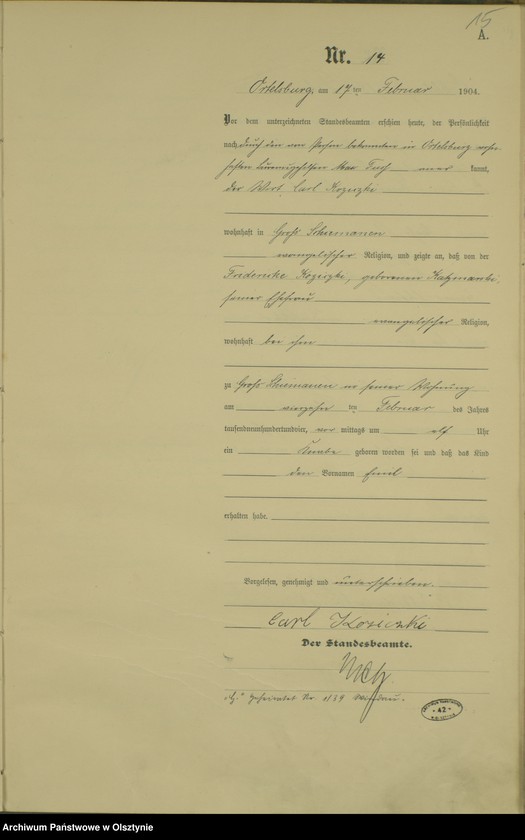 15
A.
Nr. 14
Ortelsburg, am 17ten Februar 1904.
Vor dem unterzeichneten Standesbeamten erschien heute, der Persönlichkeit
nach durch den von Person bekannten in Ortelsburg wohn-
haften Max Tuch kannt,
der Wirt Carl
wohnhaft in Groß Schiemanen
evangelischer Religion, und zeigte an, daß von der
Friederike geborenen
seiner Ehefrau
evangelischer Religion,
wohnhaft bei ihm
zu Groß Schiemanen in seiner Wohnung
am vierzehn ten Februar des Jahres
tausendneunhundertundvier, vor mittags um elf Uhr
ein Knabe geboren worden sei und daß das Kind
den Vornamen Emil
erhalten habe.
Vorgelesen, genehmigt und unterschrieben.
Carl
Der Standesbeamte.
geheiratet Nr.
42
Archiwum Państwowe w Olsztynie